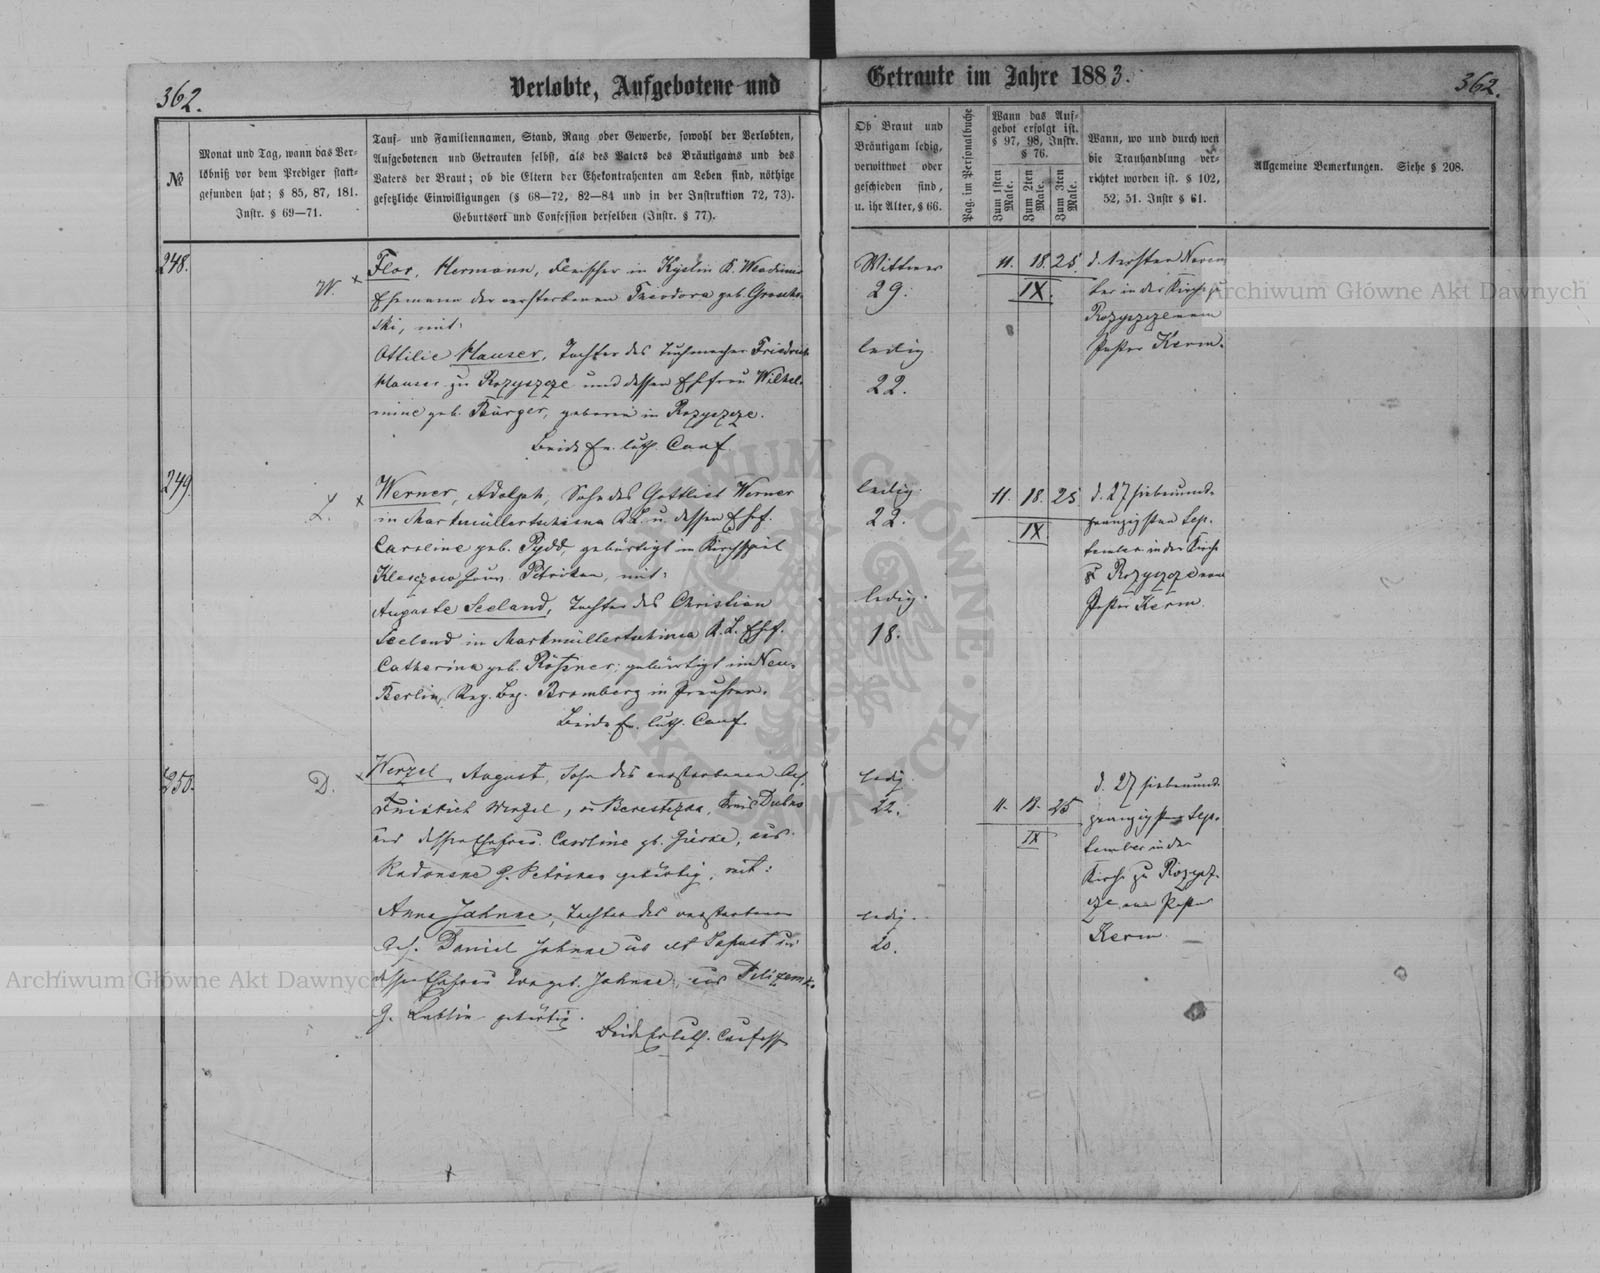 362.
Verlobte, Aufgebotene und
Getraute im Jahre 1883.
362.
№
Monat und Tag, wann das Ver-
löbniß vor dem Prediger statt-
gefunden hat; § 85, 87, 181.
Instr. § 69—71.
Tauf- und Familiennamen, Stand, Rang oder Gewerbe, sowohl der Verlobten,
Aufgebotenen und Getrauten selbst, als des Vaters des Bräutigams und des
Vaters der Braut; ob die Eltern der Ehekontrahenten am Leben sind, nöthige
gesetzliche Einwilligungen (§ 68—72, 82—84 und in der Instruktion 72, 73).
Geburtsort und Confession derselben (Instr. § 77).
Ob Braut und
Bräutigam ledig,
verwittwet oder
geschieden sind,
u. ihr Alter, § 66.
Pag. im Personalbuche
Wann das Auf-
gebot erfolgt ist.
§ 97, 98, Instr.
§ 76.
Zum 1sten Male.
Zum 2ten Male.
Zum 3ten Male.
Wann, wo und durch wen
die Trauhandlung ver-
richtet worden ist. § 102,
52, 51. Instr § 61.
Allgemeine Bemerkungen. Siehe § 208.
248.
W.
Flor, Hermann, Fleischer in
Ehemann der verstorbenen Theodora geb.
ski, mit:
Ottilie Hauser, Tochter des Tuchmacher Friedrich
Hauser zu Rozyszcze und dessen Ehefrau Wilhel-
mine geb. Bürger, geboren in Rozyszcze.
Beide Ev. luth. Conf.
Wittwer
29.
ledig
22.
11. 18. 25.
IX.
ber in der Kirche zu
Rozyszcze vom
Pastor Kerm.
249.
L.
Werner, Adolph, Sohn des Gottlieb Werner
in K. L. u. dessen Ehef.
Caroline geb. Rydd, gebürtigt im Kirchspiel
Kleszczow Gouv. Petrikau, mit:
Auguste Seeland, Tochter des Christian
Seeland in K. L. Ehef.
Catharina geb. Rößner, gebürtigt in Neu-
Berlin, Reg. Bez. Bromberg in Preußen.
Beide Ev. luth. Conf.
ledig.
22.
ledig.
18.
11. 18. 25
IX.
d. 27 siebenund-
zwanzigsten Sep-
tember in der Kirche
z Rozyszcze vom
Pastor Kerm.
250.
D.
Wenzel, August, Sohn des verstorbenen
Friedrich Wenzel, Kreis Dubno
und dessen Ehefrau Caroline geb. aus
G. Petrikau gebürtig, mit:
Anna Jahnke, Tochter des verstorbenen
Daniel Jahnke
dessen Ehefrau geb. Jahnke, aus
G. Lublin gebürtig.
Beide Ev. luth. Confess.
ledig.
22.
ledig.
20.
11. 18. 25
IX
d. 27 siebenund-
zwanzigsten Sep-
tember in der
Kirche zu Rozysz-
cze vom Pastor
Kerm.
Archiwum Główne Akt Dawnych
Archiwum Główne Akt Dawnych
ARCHIWUM GŁÓWNE AKT DAWNYCH